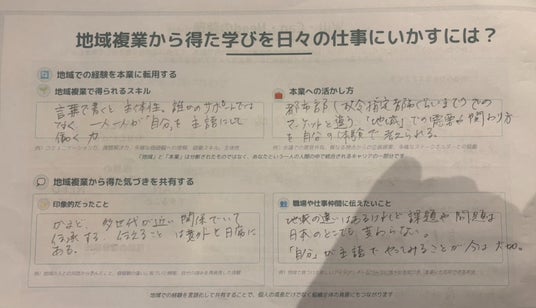 地域複業から得た学びを日々の仕事にいかすには?
地域での経験を本業に転用する
地域複業で得られるスキル
言葉で書くと主体性。誰かのサポートでは
なく、一人一人が「自分」を主語にして
働く力
本業への活かし方
都市部(政令指定都市くらいまで)での
マーケットと違う「地域」での需要や関わり方
を自分の体験で考えられる。
「地域」と「本業」は分断されたものではなく、あなたという一人の人間の中で統合されるキャリアの一部分です。
地域複業から得た気づきを共有する
印象的だったこと
かまど。多世代が近い関係でいて
伝承する、伝えることは意外と日常に
ある。
職場や仕事仲間に伝えたいこと
地域の違いはあるけれど課題や問題は
日本のどこでも変わらない。
「自分」が主語でやってみることが今は大切。
地域での経験を言語化して共有することで、個人の成長だけでなく組織全体の資産にもつながります